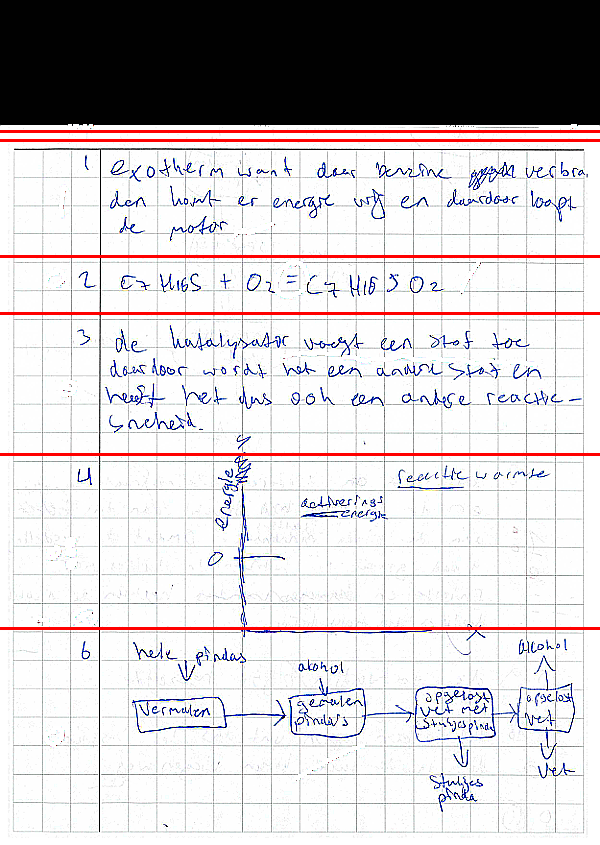 1 exotherm want door benzine verbra
den komt er energie vrij en daardoor loopt
de motor
2 C7 H16S + O2 = C7 H16 S O2
3 de katalysator voegt een stof toe
daardoor wordt het een andere stof en
heeft het dus ook een andere reactie-
snelheid.
4 energie
reactie warmte
activerings
energie
0
6 hele pindas
alcohol
alkohol
Vermalen
gemalen
pinda's
opgelost
vet met
stukjes pinda
opgelost
vet
stukjes
pinda
vet